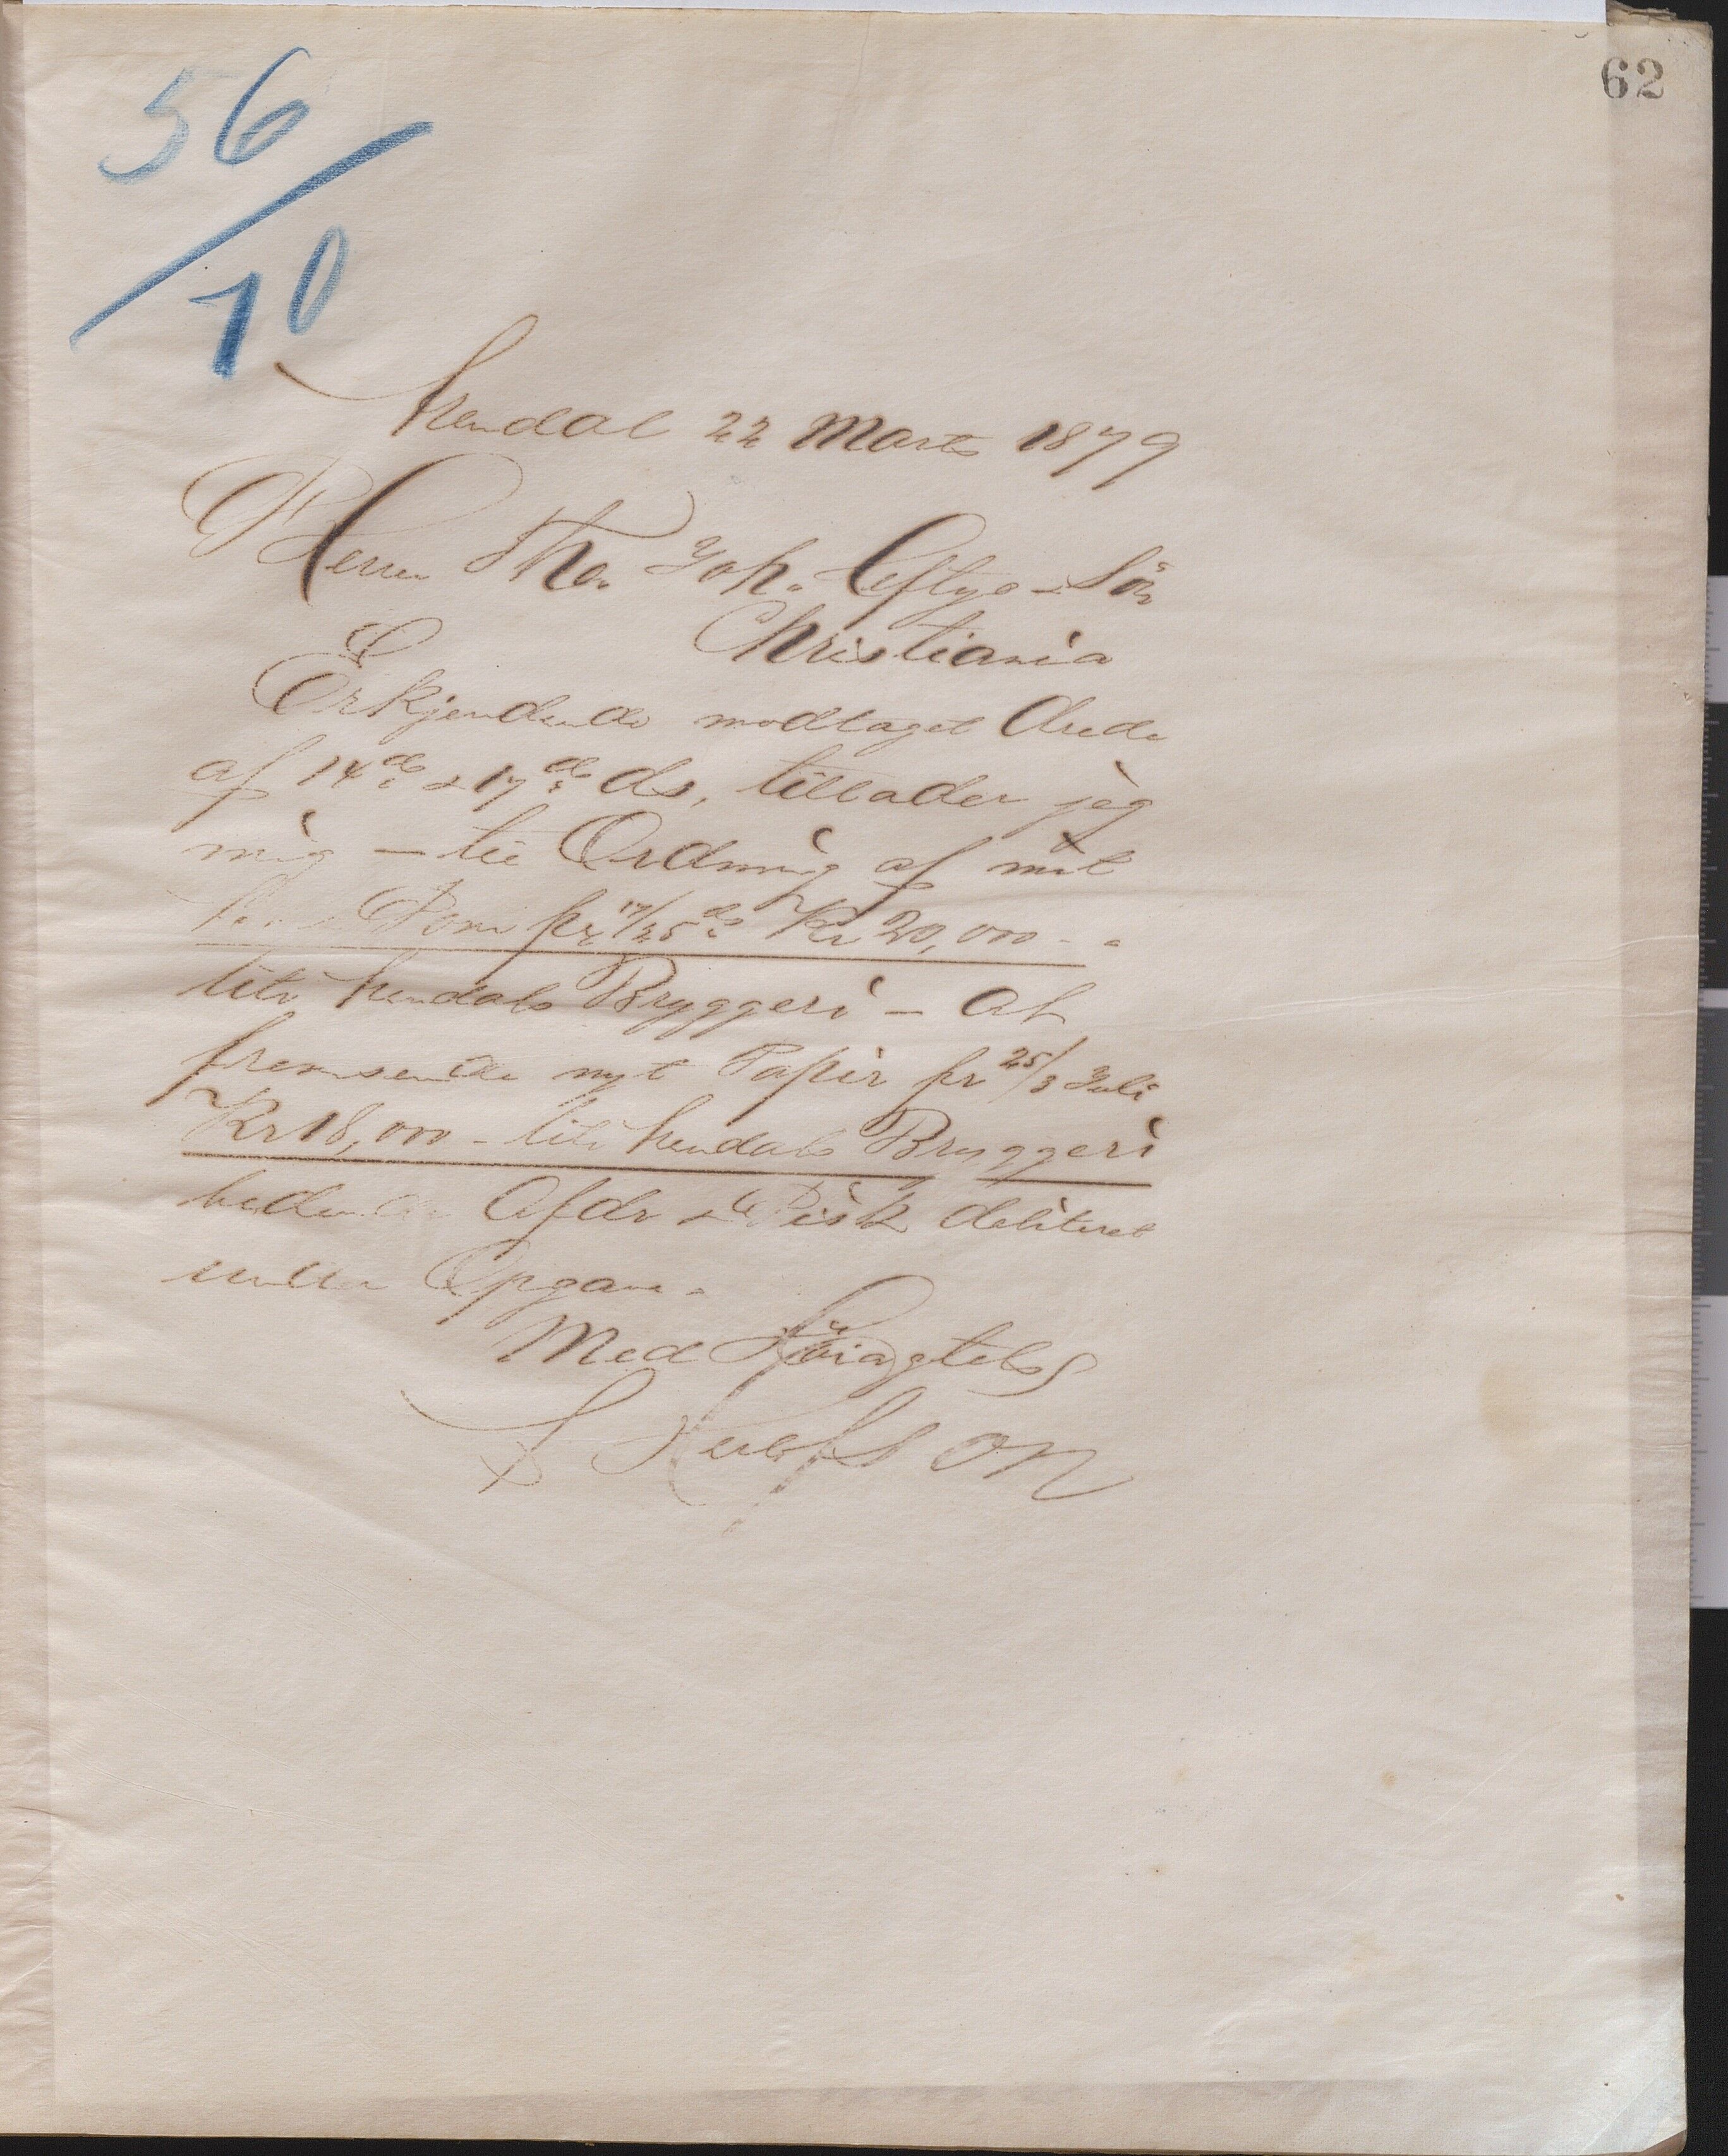 62
56/10
Arendal 22 Marts 1879
Herrer Tho. Joh. Heftye & Sön
Christiania
Erkjendende modtaget Ærede
af 14de & 17de ds, tillader jeg
mig – til Ordning af mit
Domi pr 17/25de Kr 20,000 -
titr Arendals Bryggeri – at
fremsende nyt Papir pr 25/3 Juli
Kr 18,000 - titr Arendals Bryggeri
bedende Afdr & Disk debiteret
under Opgave.
Med Høiagtelse